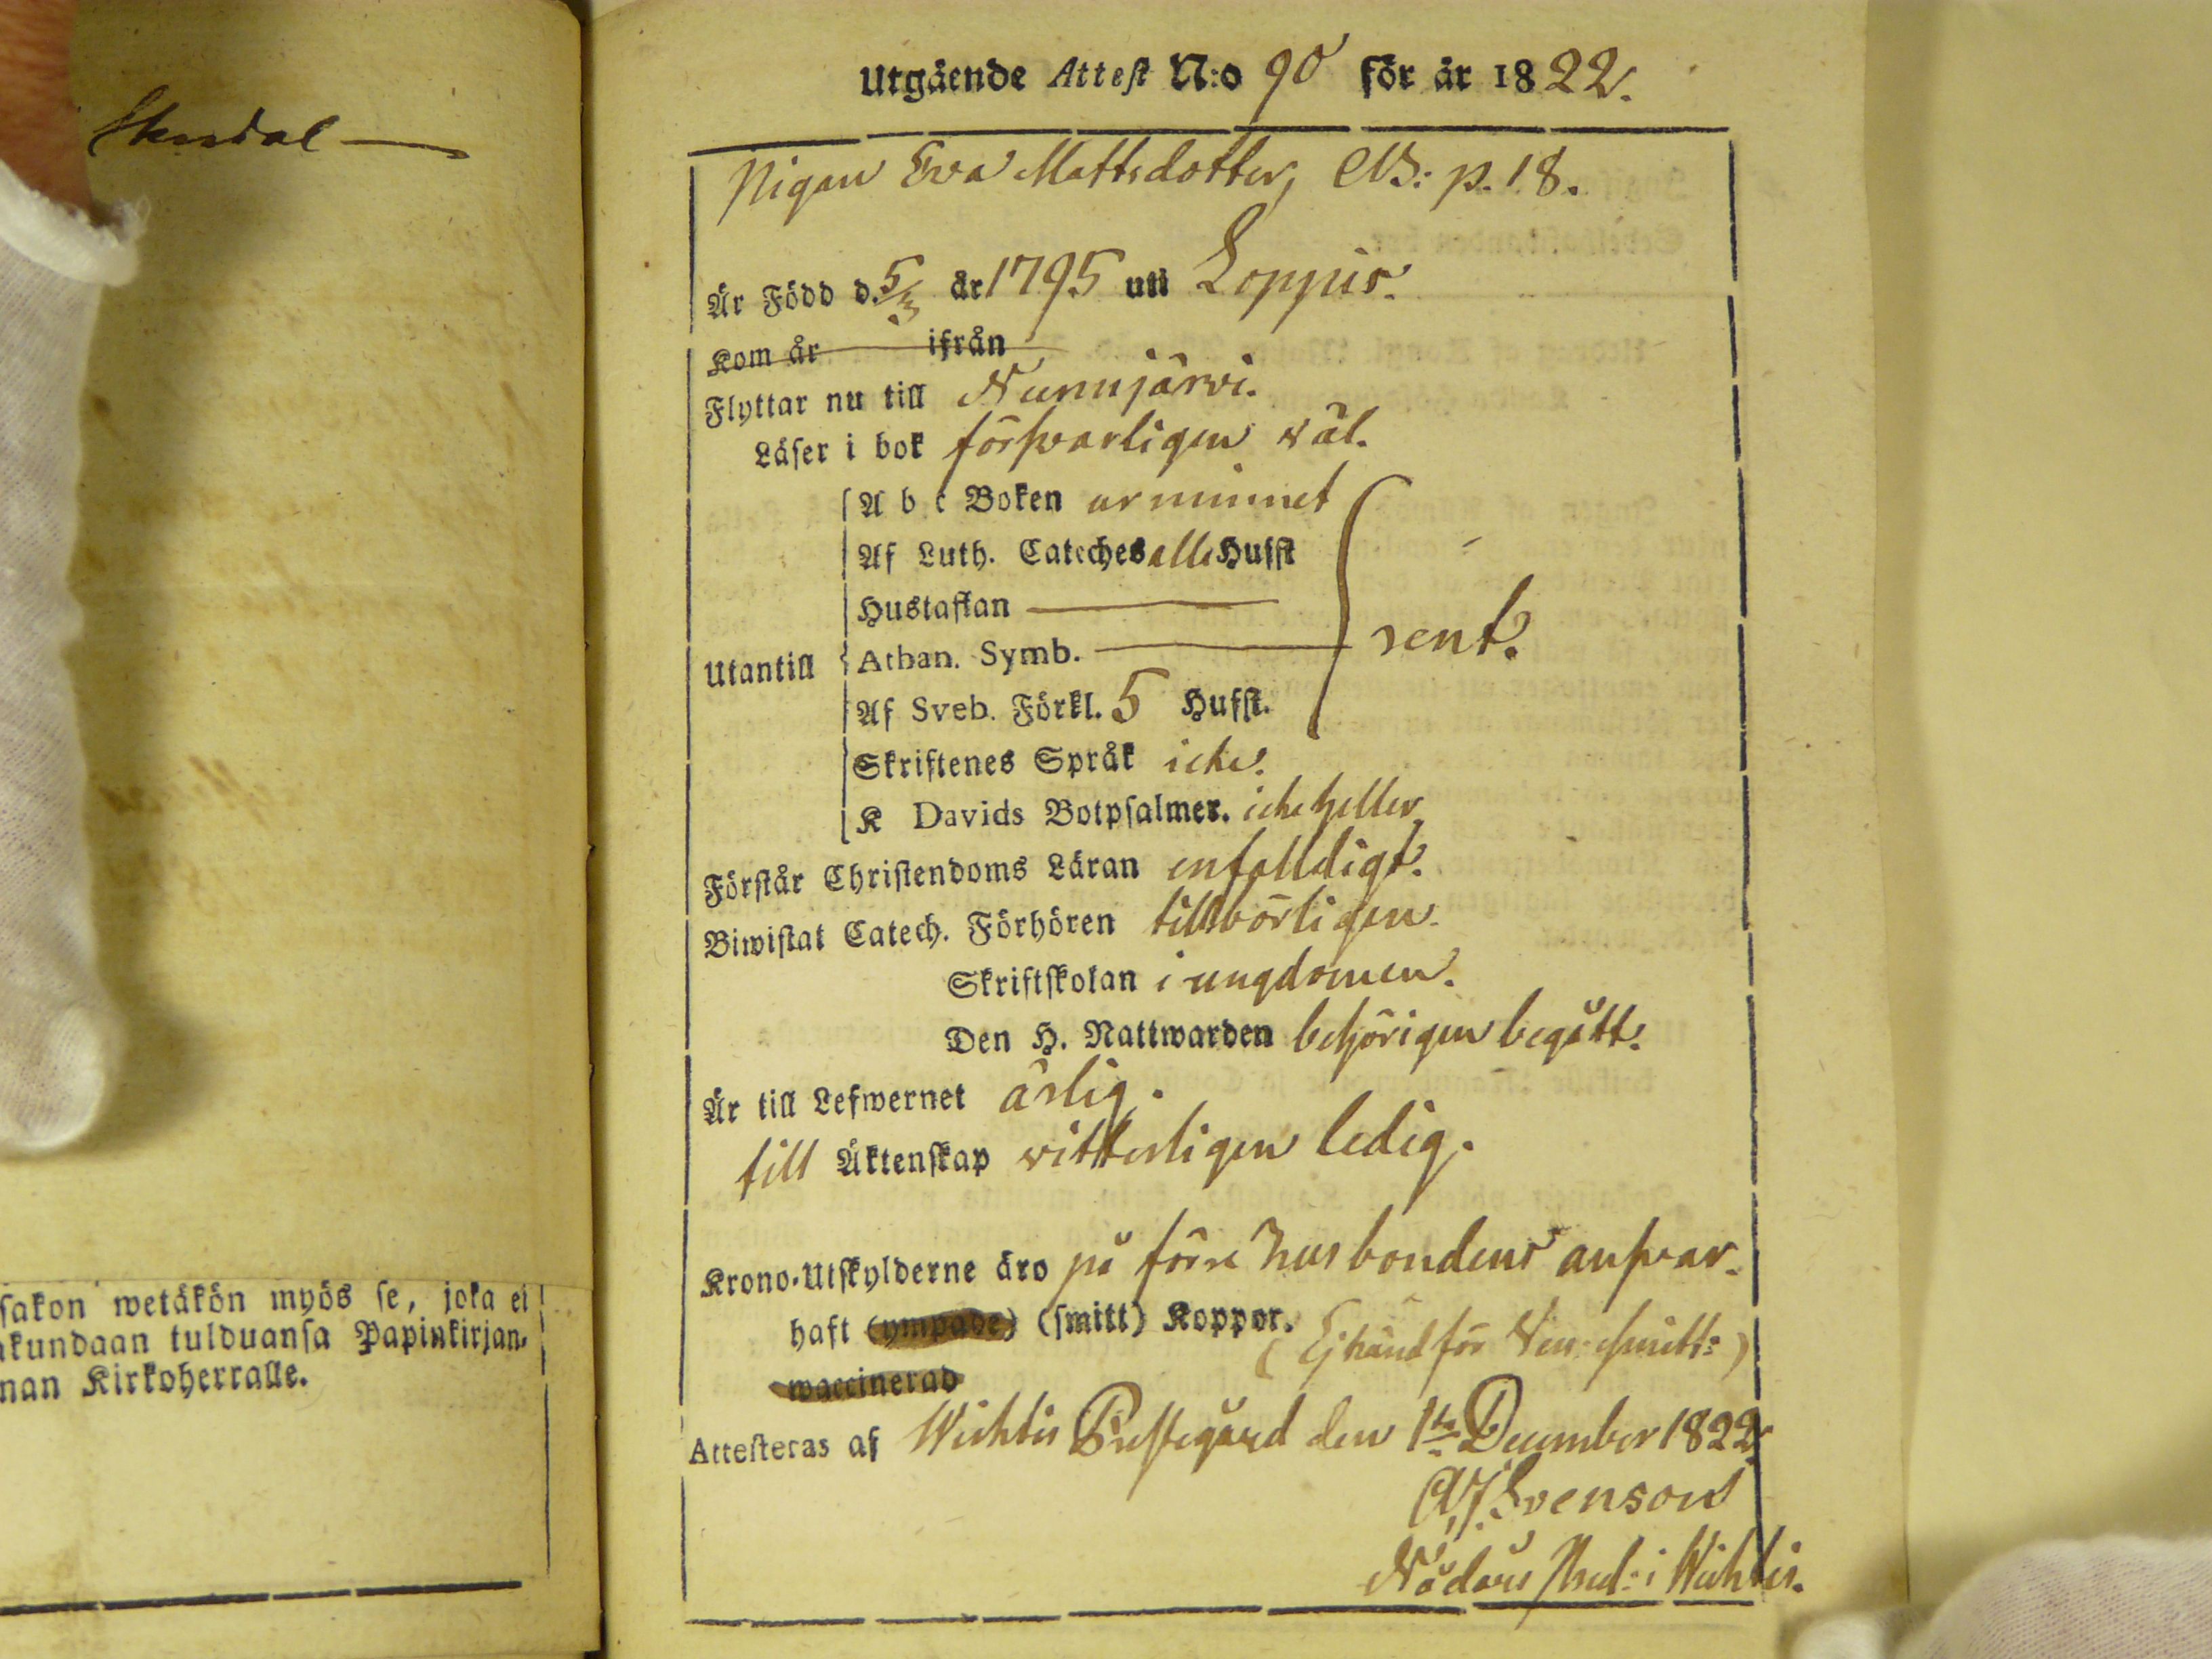 Skordal
sakon wetäkön myös se, joka ei
kundaan tulduansa Papinkirjan-
nan Kirkoherralle.
Utgående Attest N:o 90 för år 1822.
Pigan Eva Mattsdotter, CB: p. 18.
Är Född d. 5/3 år 1795 uti Loppis.
Kom år ifrån
Flyttar nu till Nurmijärvi.
Läser i bok förswarligen wäl.
A b c Boken ur minnet
Af Luth. Cateches alla Hufst
Hustaflan
Utantill Athan. Symb. rent.
Af Sveb. Förkl. 5 Hufst.
Skriftenes Språk icke.
K Davids Botpsalmer. icke heller
Förstår Christendoms Läran enfalldigt.
Biwistat Catech. Förhören tillbörligen.
Skriftskolan i ungdomen.
Den H. Nattwarden behörigen begått.
Är till Lefwernet ärlig.
till Äktenskap witterligen ledig.
Krono-Utskylderne äro på förre husbondens answar.
haft (ympade) (smitt) Koppor. (Ej känd för Ven: smitta)
waccinerad
Attesteras af Wichtis Prestegård den 1sta December 1822
A.J. Svenson
Nådårs Pred: i Wichtis.